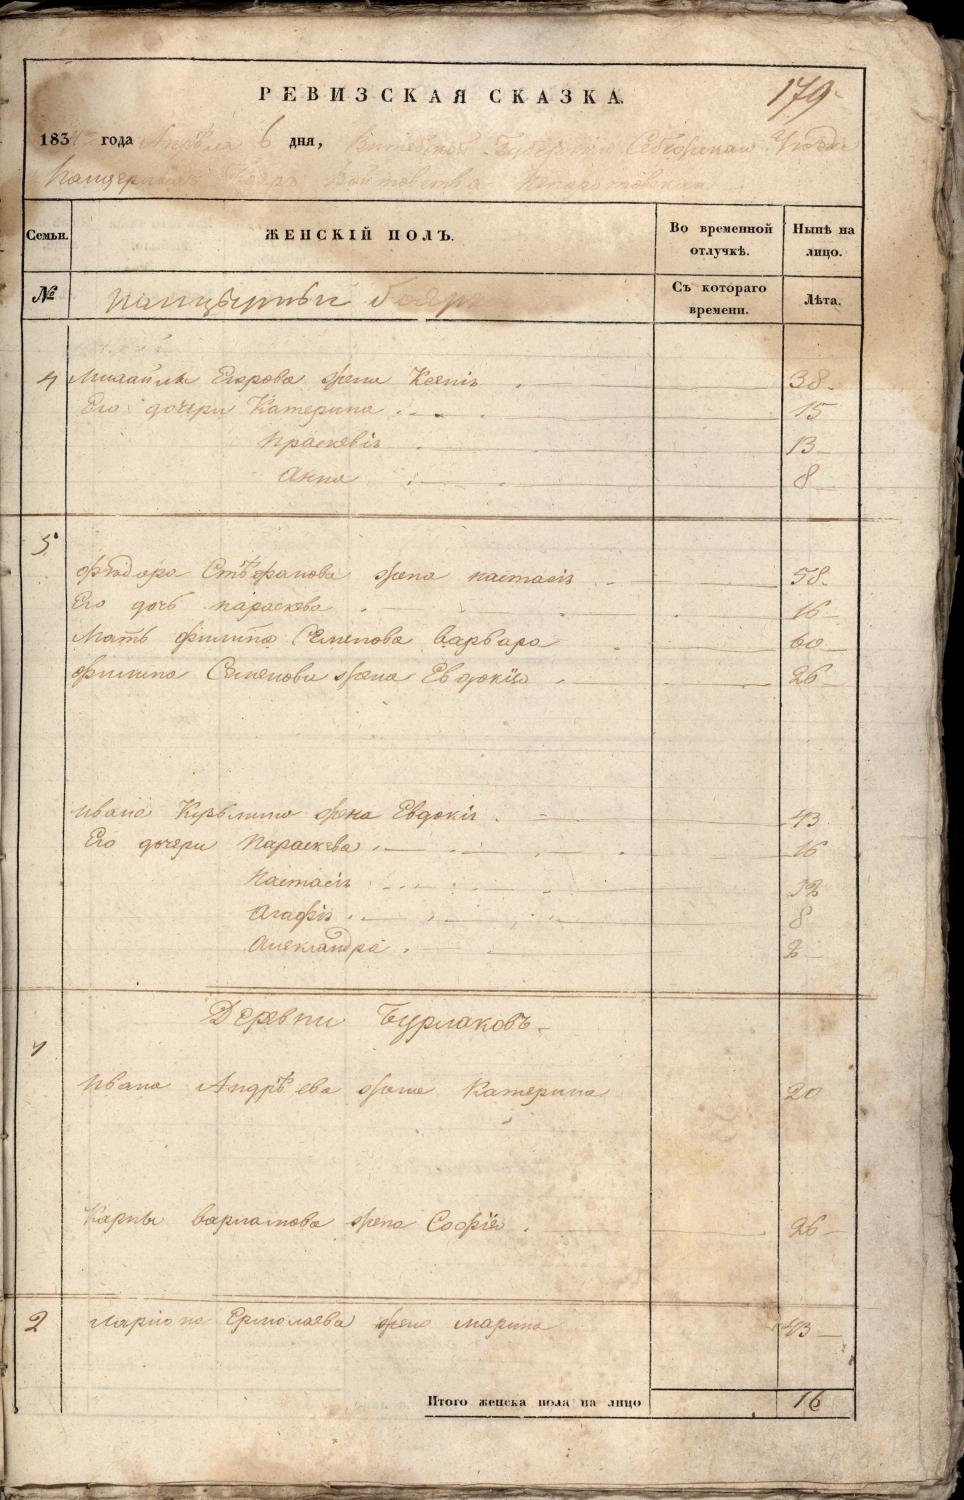 РЕВИЗСКАЯ СКАЗКА.
179
183 года Апрѣля 6 дня, Витебской Губерніи Себежскаго Уѣзда
Войтовства
Семьи.
ЖЕНСКІЙ ПОЛЪ.
Во временной
отлучкѣ.
Нынѣ на
лицо.
№
Панцырныи бояр
Съ котораго
времени.
Лѣта.
4 Михайлы Егорова жена Ксенія 38
Его дочери Катерина 15
Праскевія 13
Анна 8
5
Ѳѣдора Стѣфанова жена настасія 58
Его дочь параскева 16
Мать филипа Семенова варвара 60
филипа Семенова жена Евдокія 26
ивана жена Евдокія 43
Его дочери Параскева 16
Настасія 12
Агафія 8
Александра 2
Деревни Бурлаковъ
1
Ивана Андрѣева жена Катерина 20
Карпы варламова жена Софія 26
2 Ларіона Ермолаева жена марина 43
Итого женска пола на лицо 16